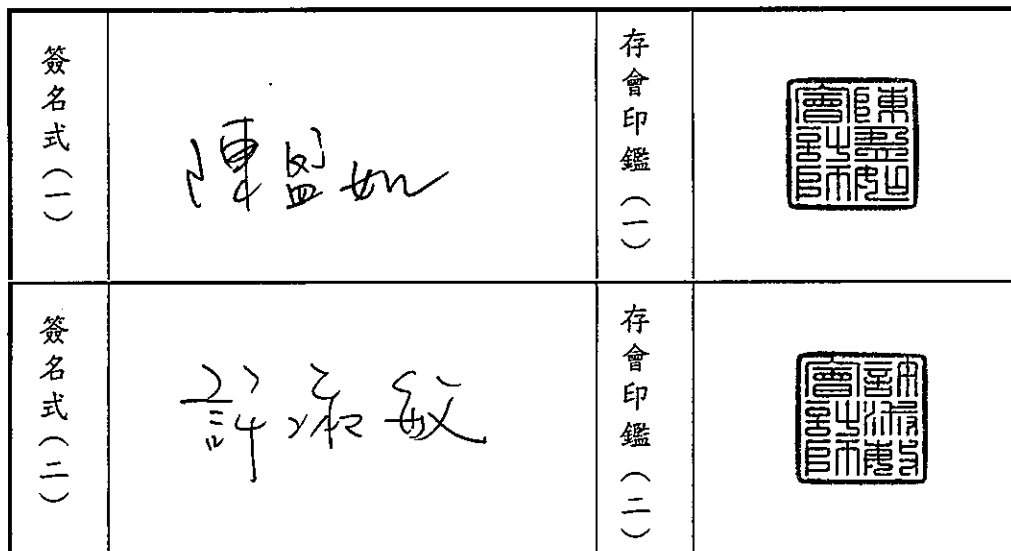 簽名式(一)
陳盈如
存會印鑑(一)
陳盈如會計師
簽名式(二)
許淑敏
存會印鑑(二)
許淑敏會計師